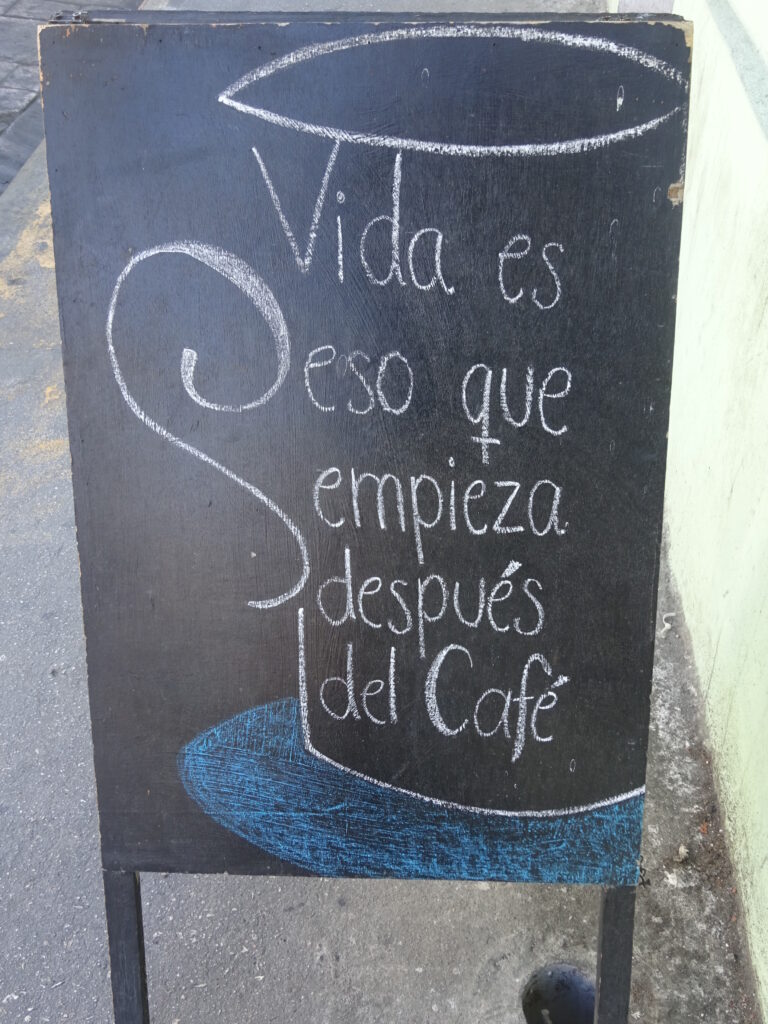 Vida es
eso que
empieza
después
del Café